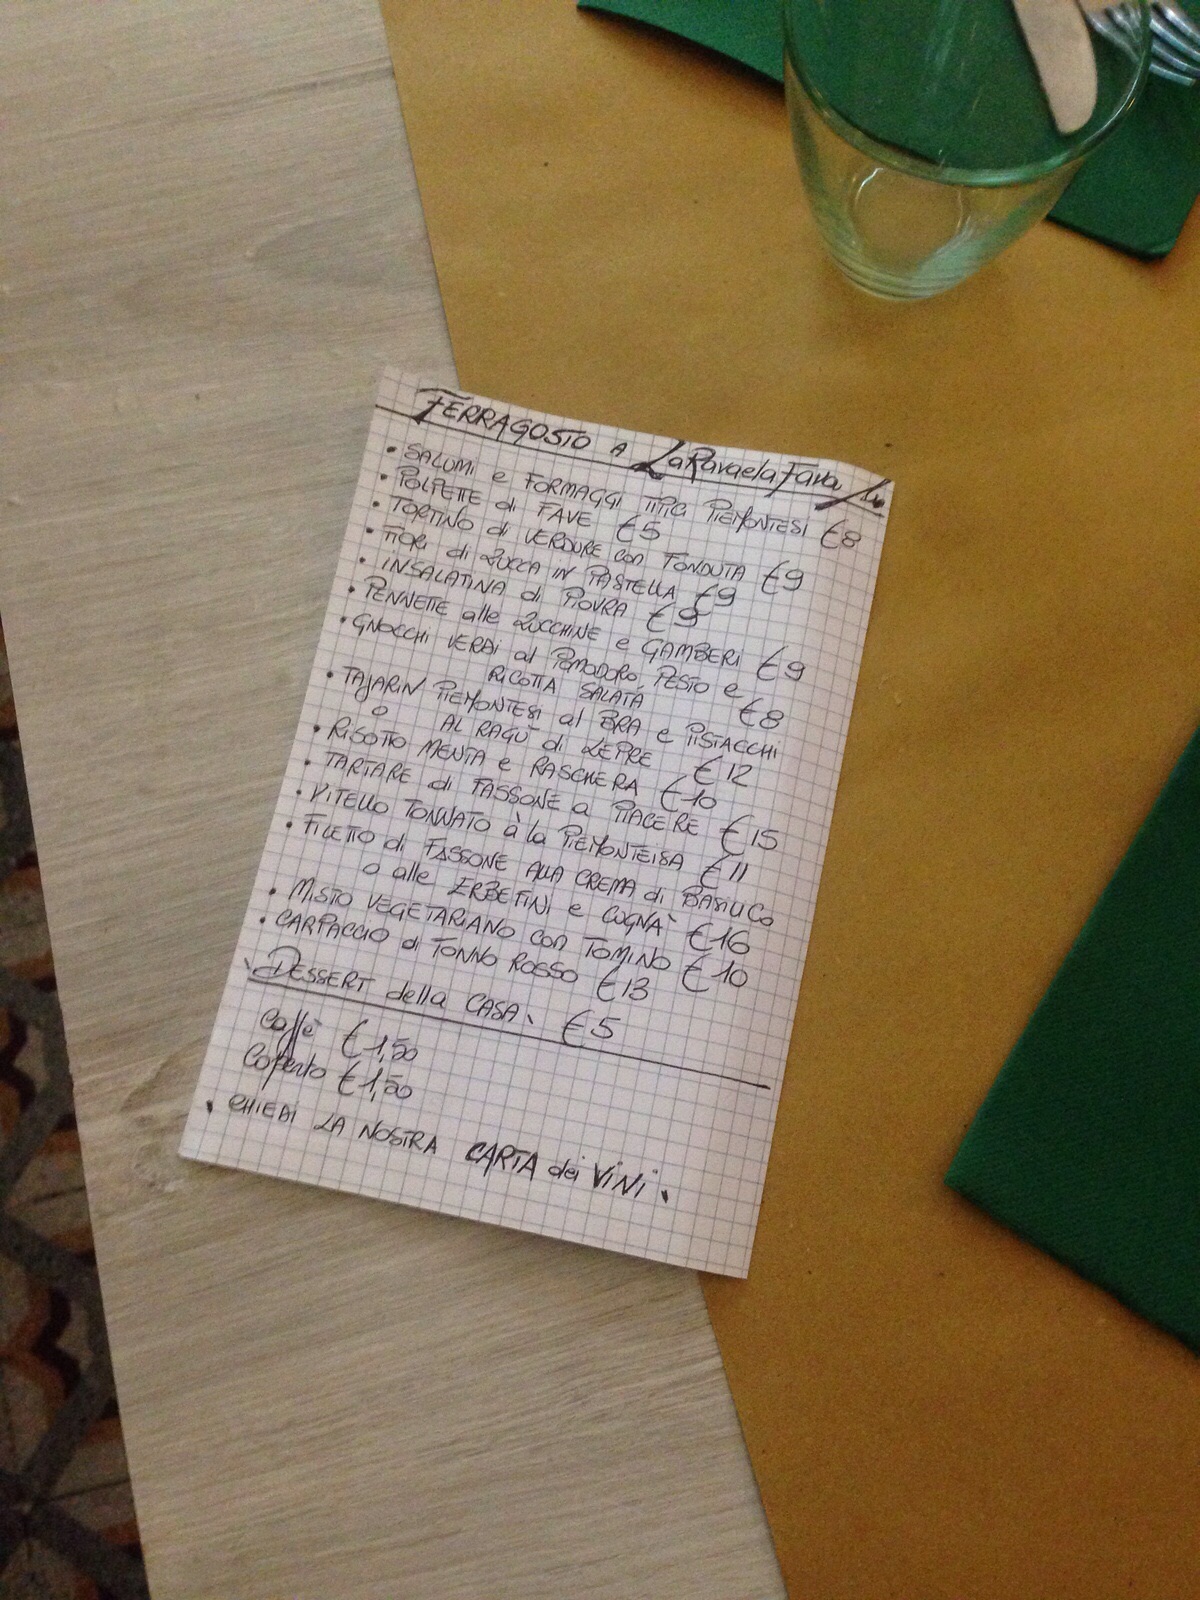 FERRAGOSTO A LaRavaelaFava
• SALUMI e FORMAGGI TIPICI PIEMONTESI €8
• POLPETTE di FAVE €5
• TORTINO di VERDURE con FONDUTA €9
• FIORI di ZUCCA IN PASTELLA €9
• INSALATINA di PIOVRA €9
• PENNETTE alle ZUCCHINE e GAMBERI €9
• GNOCCHI VERDI al POMODORO, PESTO e
RICOTTA SALATA €8
• TAJARIN PIEMONTESI al BRA e PISTACCHI
O AL RAGÙ di LEPRE €12
• RISOTTO MENTA e RASCHERA €10
• TARTARE di FASSONE a PIACERE €15
• VITELLO TONNATO à la PIEMONTEISA €11
• FILETTO di FASSONE ALLA CREMA di BASILICO
o alle ERBETINI e COGNÀ €16
• MISTO VEGETARIANO con TOMINO €10
• CARPACCIO di TONNO ROSSO €13
DESSERT della CASA €5
Caffè €1,50
Coperto €1,50
• CHIEDI LA NOSTRA CARTA dei VINI.